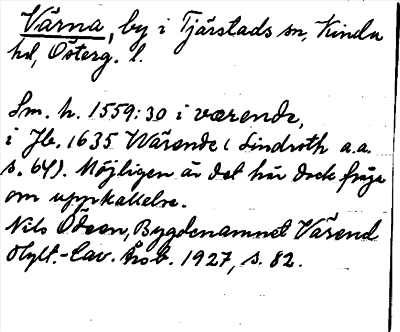 Värna, by i Tjärstads sn, Kinda
hd, Österg. l.
Sm. h. 1559:30 i værende,
i Jb. 1635 Wärende (Lindroth a.a.
s. 64). Möjligen är det här dock fråga
om uppkallelse.
Nils Ödeen, Bygdenamnet Värend
Hylt.-Cav. årsb. 1927, s. 82.